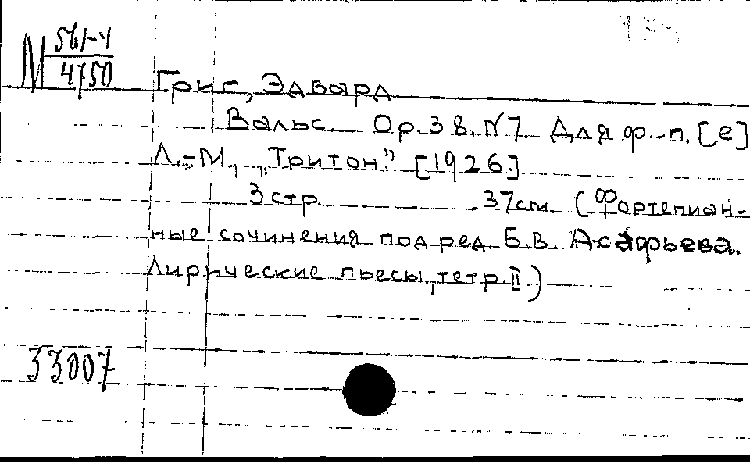 М 561-4
4750
Григ, Эдвард
Вальс. Ор.38. №7 Для ф.-п. [е]
Л.-М., „Тритон” [1926.]
3 стр. 37см. (Фортепиан-
ные сочинения под ред. Б.В. Асафьева.
Лирические пьесы, тетр. II)
33007